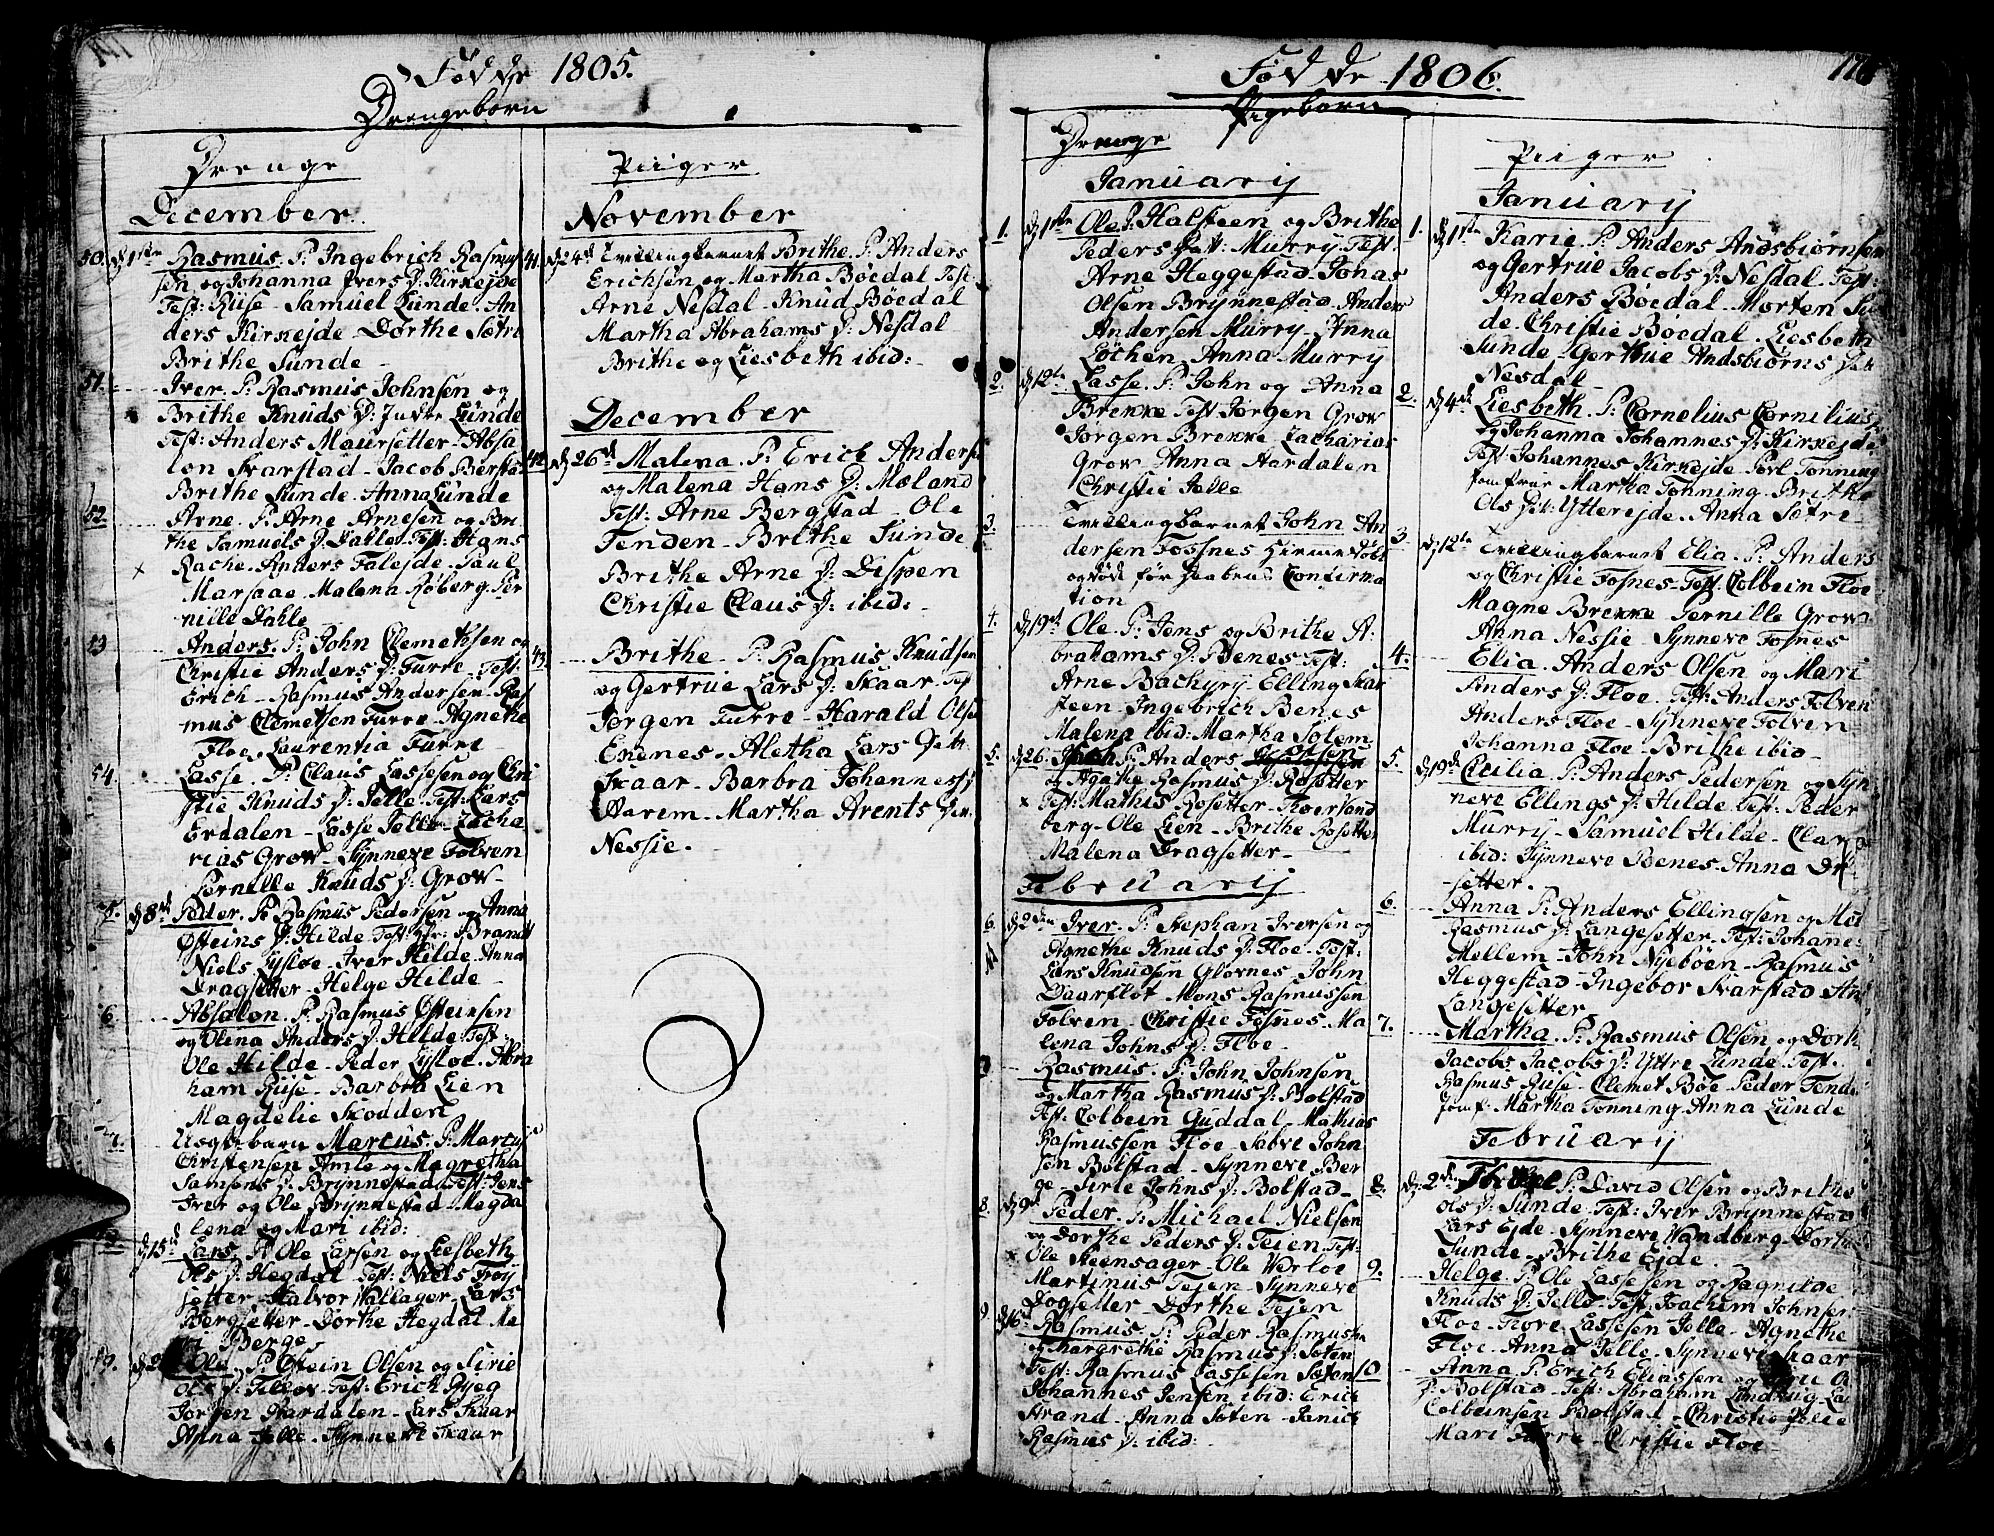 Fødde 1805.
Drengebørn
Drenge
December
50. d 1ste Rasmus. P. Ingebrich Rasmus
sen og Johanna Ivers D. Kirkejde
Test: Ruse - Samuel Sunde. An
ders Kirkejde - Dorthe Setri
Brithe Sunde -
51. Iver. P. Rasmus Johnsen og
Brithe Knuds D: Indre Sunde
Test: Anders Maursetter - Absa
lon Svarstad - Jacob Berstad
Brithe Sunde - Anna Sunde
52. Arne. P. Arne Arnesen og Bri
the Samuels D. Dalle. Test: Hans
Rache. Anders Falejde. Paul
Marsaae. Malena Röberg. Per
nille Dahle
53 Anders. P. John Clemetssen og
Christie Anders D. Furre. Test:
Erich - Rasmus Andersen - Ras
mus Clemetsen Furre. Agnethe
Floe. Laurentia Furre -
54. Lasse. P. Claus Lassesen og Chri
stie Knuds D. Jelle. Test: Lars
Erdalen - Lasse Jelle. Zacha
rias Grow - Synneve Folven
Pernille Knuds D: Grow -
5. d 8de Peder. P. Rasmus Pedersen og Anna
Østeins D. Hilde Test: Hr: Brandt
Niels Eysloe - Iver Hilde. Anna
Dragsetter - Helge Hilde -
6. Absalon. P. Rasmus Østeinsen
og Olena Anders D. Hilde. Test:
Ole Hilde - Peder Eysloe. Abra
ham Ruse - Barbra Eien
Magdelie Skodden
7. Uægtebarn Marcus. P. Marcus
Christensen Amle og Magretha
Samsons D. Brynnestad. Test: Jens
Iver og Ole Brynnestad. Magda
lena og Mari ibid:
d 15de Lars. P. Ole Larsen og Liesbeth
Ols D. Hegdal Test: Niels Frøy
setter - Halvor Wallager. Lars
Bergsetter - Dorthe Hegdal. Ma
ri Berge
59. Ole. P. Østein Olsen og Sirie
Ols D. Tellov. Test: Erich Ryeg
Jørgen Aardalen - Lars Skaar
Anna Jelle. Synneve Skaar
Piiger
November
41. d 24de Tvillingbarnet Brithe. P. Anders
Erichsen og Martha Bøedal Test:
Arne Nesdal - Knud Bøedal
Martha Abrahams D: Nesdal
Brithe og Liesbeth ibid:
December
42. d 26de Malena. P. Erich Anders
og Malena Hans D: Mæland
Test: Arne Bergstad - Ole
Tenden - Brithe Sunde
Brithe Arne D: Dispen
Christie Claus D: ibid:
43. Brithe - P. Rasmus Knudsen
og Gertrue Lars D: Skaar. Test
Jørgen Furre - Harald Olsen
Exenes. Aletha Lars Dtt:
Skaar - Barbra Johannes D
Aarem - Martha Arents Dtr:
Nessie.
Fødde 1806.
Pigebørn
Drenge
January
1. d 1ste Ole P. Halsteen og Brithe
Peders Datt: Murry. Test
Arne Heggestad. Jonas
Olsen Brynnestad. Anders
Andersen Murry - Anna
Løchen. Anna Murry
2. d 12te Lasse. P. John og Anna
Brekke. Test Jørgen Grow
Jørgen Brekke Zacharias
Grow. Anna Aardalen
Christie Jelle
3. Tvillingbarnet John An
dersen Fosnes Hjemmedøbt
og død før Daabens Confirma
tion
4. d 19de Ole. P: Jens og Brithe A.
brahams D. Benes. Test:
Arne Bachyry. Elling Skar
steen - Ingebrich Benes
Malena ibid: Martha Solem
5. d 26. P. Anders
og Agnethe Rasmus D: Rosetter
Test: Mathis Rosetter - Thor Sand
berg - Ole Eien - Brithe Rosetter
Malena Dragsetter -
February
6. d 2den Iver. P. Stephan Iversen og
Agnethe Knuds D. Floe. Test:
Lars Knudsen Glovnes. John
Daarflot Mons Rasmussen
Folven - Christie Fosnes. Ma
lena Johns D. Floe -
Rasmus. P. John Johnsen
og Martha Rasmus D. Bolstad
Test: Colbein Guddal. Mathias
Rasmussen Floe. Salve John
sen Bolstad - Synneve Ber
ge - Sirle Johns D. Bolstad -
8. d 9de Peder. P. Michael Nielsen
og Dorthe Peders D. Tejen. Test:
Ole Steensager - Ole Worloe
Martinus Tejen - Synneve
Dogsetter - Dorthe Tejen
9 d 16de Rasmus. P: Peder Rasmussen
og Margrethe Rasmus D: Soten
Test: Rasmus Lassesen Soten
Johannes Jensen ibid: Erich
Strand - Anna Soten - Janich
Rasmus D: ibid:
Piiger
January
1. d 1ste Karie P. Anders Andsbiørnsen
og Gertrue Jacobs D. Nesdal. Test:
Anders Bøedal - Morten Sun
de. Christie Bøedal. Liesbeth
Sunde. Gerthue Andsbiørns Dtt
Nesdal -
2. d 4de Liesbeth. P: Cornelius Cornilius
og Johanna Johannes D. Kirkejde.
Test: Johannes Kirkejde. Povl Tonning
jomfrue Martha Tonning. Brithe
Ols Dtt: Ytterejde. Anna Setre -
3 d 12te Tvillingbarnet Elia. P. Anders
og Christie Fosnes - Test: Colbein Floe.
Magne Brekke Pernille Grow
Anna Nessie. Synneve Fosnes
4. Elia. Anders Olsen og Mari
Anders D. Floe. Test: Anders Folven
Anders Floe - Synneve Folven
Johanna Floe - Brithe ibid -
5. d 19de Cecilia P. Anders Pedersen og Syn
neve Ellings D. Hilde Test: Peder
Murry - Samuel Hilde - Clara
ibid: Synneve Benes. Anna Dr
setter.
6. Anna P. Anders Ellingsen og Mal
Rasmus D. Langesetter. Test: Johane
Mellem - John Nyeboen - Rasmus
Heggestad - Ingebor Svarstad An
Langesetter
7. Martha. P. Rasmus Olsen og Dorth
Jacobs Jacobs D. Yttre Sunde. Test.
Rasmus Ruse - Clemet Bøe Peder Tende
Jomf: Martha Tonning. Anna Sunde
February
8. d 2den P. David Olsen og Brithe
Ols D: Sunde. Test: Iver Brynnestad
Lars Ejde. Synneve Wandberg. Dorthe
Sunde. Brithe Ejde.
9. Helge. P. Ole Lassesen og Ragnilde
Knuds D. Jelle. Test: Joachim Johnsen
Floe - Tore Lassesen Jelle - Agnethe
Floe. Anna Jelle. Synneve Skaar
10. Anna P. Erich Elinssen og
D: Bolstad. Test: Abraham Lundhug. La
Colbeinsen Bolstad. - Christie Jelle
Mari Furre - Cristie Floe -